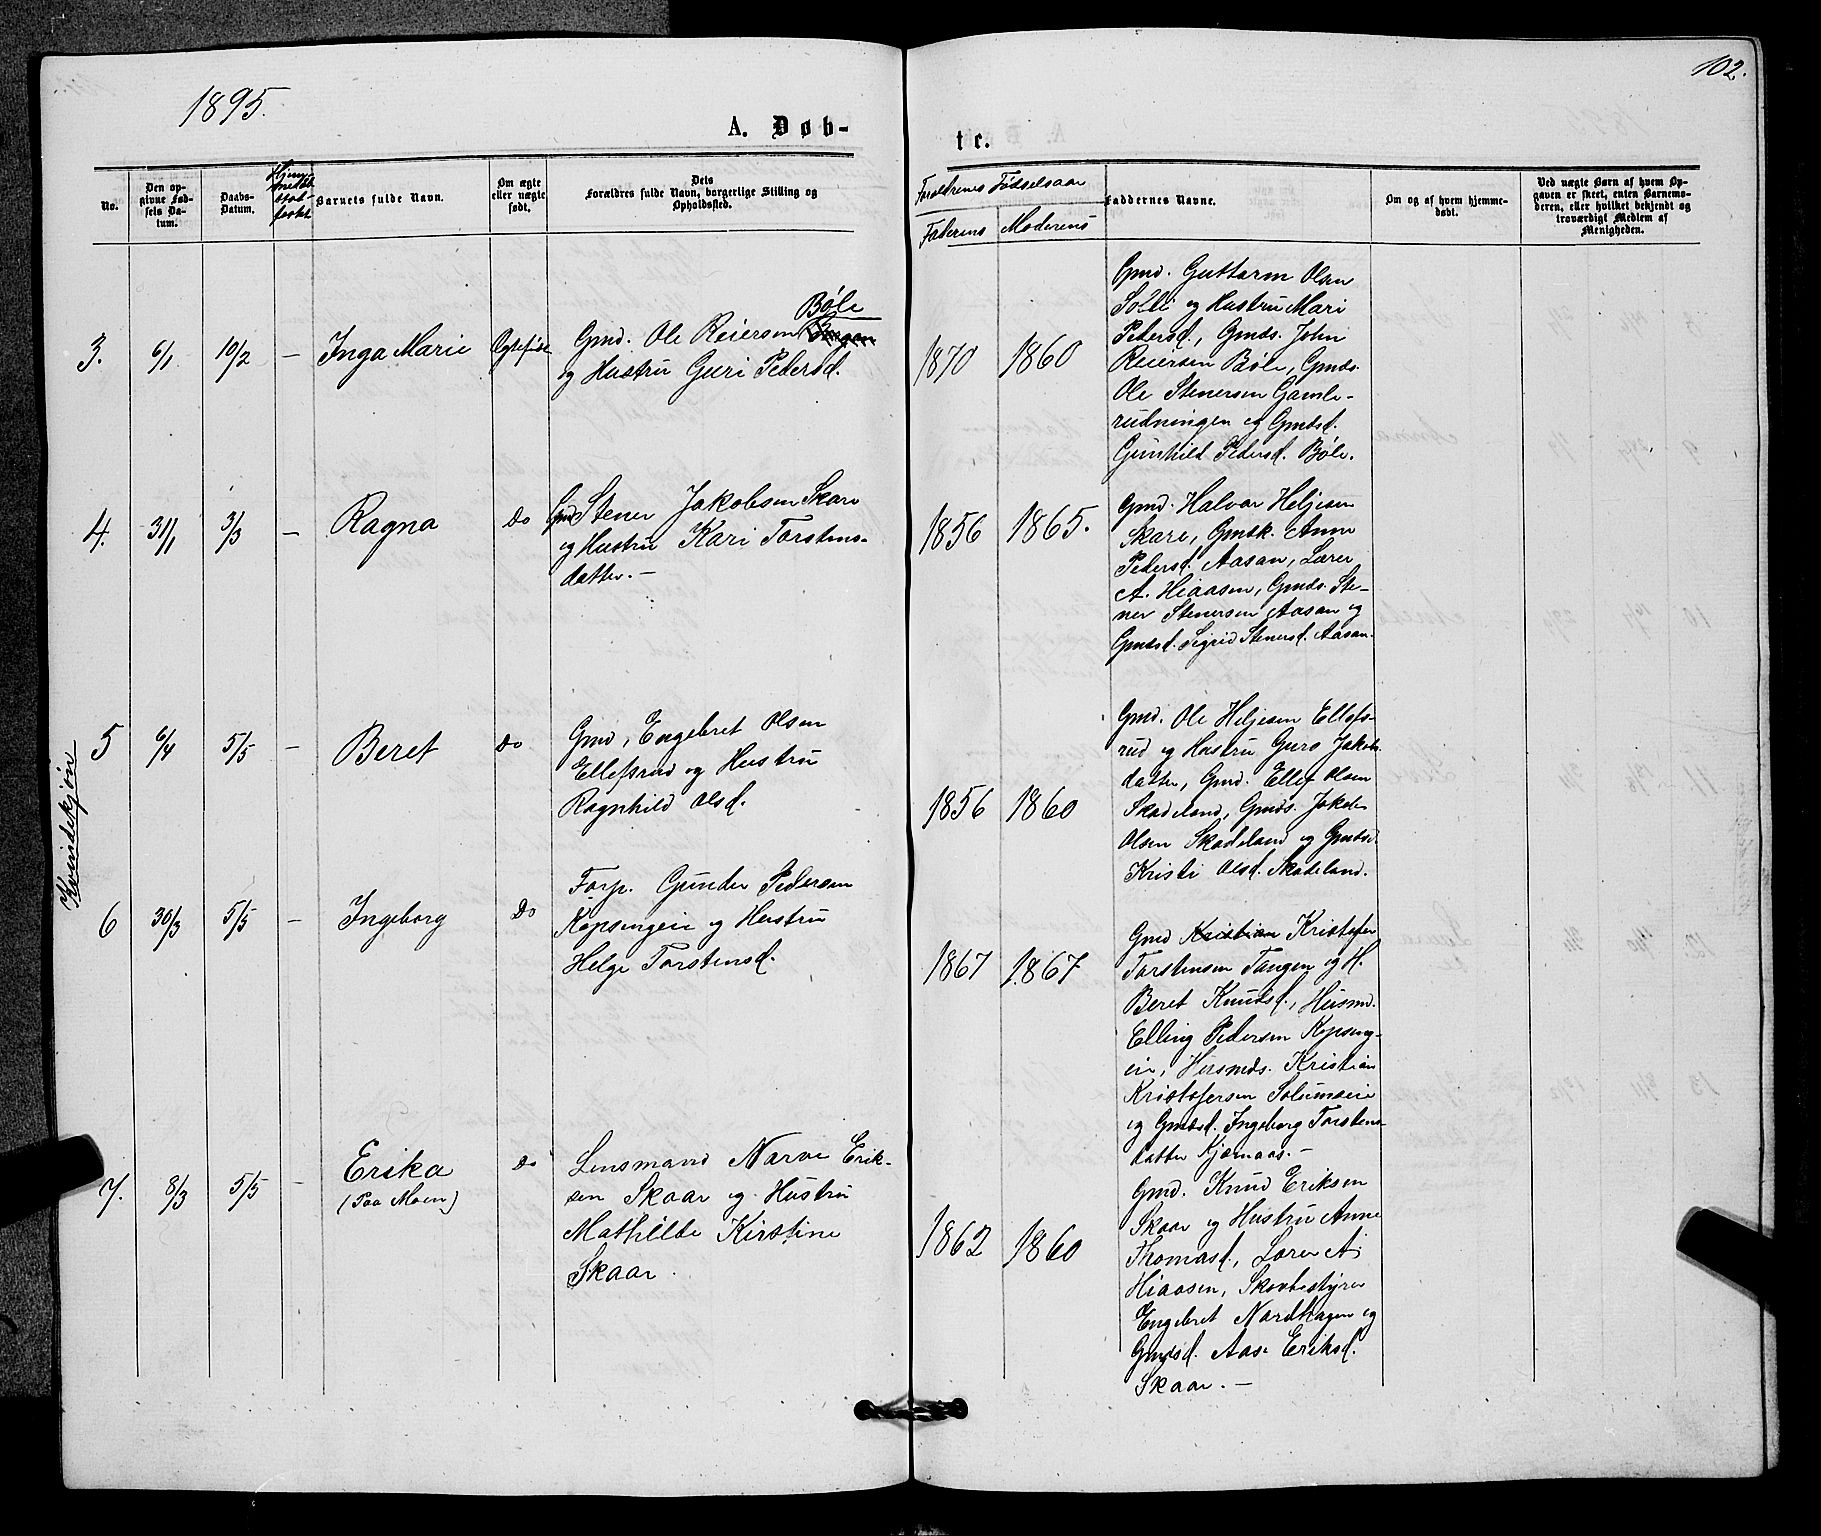 102.
1895.
A. Døb-
te.
No.
Den op-
givne Fød-
sels Da-
tum.
Daabs-
Datum.
Hjemmedøbt
stadfestet
Barnets fulde Navn.
Om ægte
eller nægte
født.
Dets
Forældres fulde Navn, borgerlige Stilling og
Opholdssted.
Forældrenes Fødselsaar
Faderens
Moderens
Faddernes Navne.
Om og af hvem hjemme-
døbt.
Ved nægte Børn af hvem Op-
gaven er skeet, enten Barnemo-
deren, eller hvilket bekjendt og
troværdigt Medlem af
Menigheden.
Kvindekjøn
3.
6/1
10/2
—
Inga Marie
Ægtefødt
Bøle
Gmd. Ole Reiersen
og Hustru Guri Pedersd.
1870
1860
Gmd. Guttorm Olsen
og Hustru Mari
Pedersd., Gmds. John
Reiersen Bøle, Gmds.
Ole Stenersen Gamle-
rudningen og Gmdsd.
Gunhild Pedersd. Bøle.
4.
31/1
3/3
—
Ragna
Do
Gmd Stener Jakobsen Skare
og Hustru Kari Torstens-
datter. —
1856
1865.
Gmd. Halvor Heljesen
Skare, Gmdk. Anne
Pedersd. Aasan, Lærer
A. Hiaasen, Gmds. Ste-
ner Stenersen Aasan og
Gmdsd. Sigrid Stenersd. Aasan.
5
6/4
5/5
—
Beret
Do
Gmd, Engebret Olsen
Ellefsrud og Hustru
Ragnhild Olsd.
1856
1860
Gmd. Ole Heljesen Ellefs-
rud og Hustru Guro Jakobs-
datter, Gmd. Ellef Olsen
Skadeland, Gmds. Jakob
Olsen Skadeland og Gmdsd.
Kristi Olsd. Skadeland.
6
30/3
5/5
—
Ingeborg
Do
Forp. Gunder Pedersen
Kopsengeie og Hustru
Helge Torstensd.
1867
1867
Gmd Kristian Kristofer
Torstensen Tangen og H.
Beret Knudsd., Husmd.
Elling Pedersen Kopseng-
eie, Husmds. Kristian
Kristofersen Solumseie
og Gmdsd. Ingeborg Torstens-
datter Kjærnaas. —
7.
8/3
5/5
—
Erika
(Paa Moen)
Do
Lensmand Narve Erik-
sen Skaar og Hustru
Mathilde Kirstine
Skaar.
1862
1860
Gmd. Knud Eriksen
Skaar og Hustru Anne
Thomasd., Lærer A.
Hiaasen, Skovbestyrer
Engebret Nordhagen og
Gmdsd. Aase Eriksd.
Skaar. —